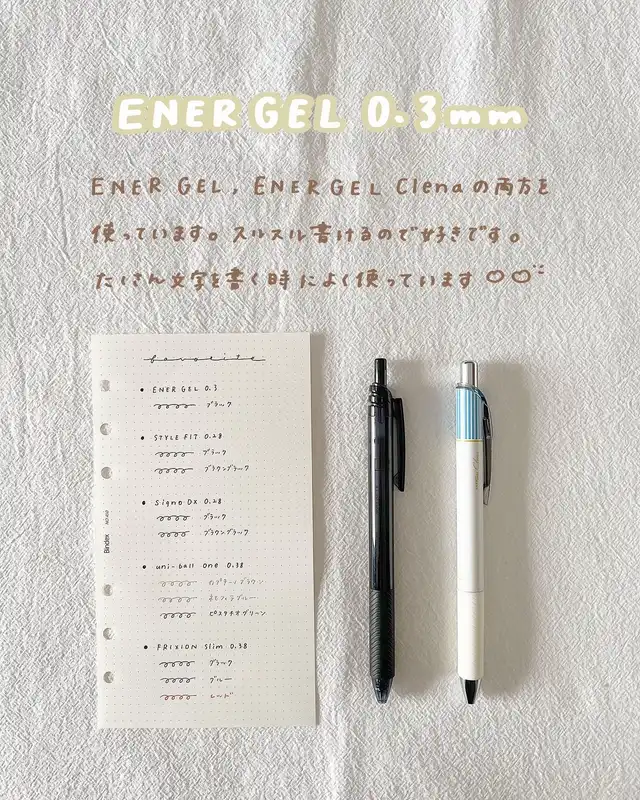 ENERGEL 0.3mm
ENER GEL, ENERGEL Clenaの両方を
使っています。スルスル書けるので好きです。
たくさん文字を書く時によく使っています
favorite
• ENER GEL 0.3
ブラック
• STYLE FIT 0.28
ブラック
ブラウンブラック
• Signo DX 0.28
ブラック
ブラウンブラック
• uni-ball One 0.38
ブラウン
ブルー
ピスタチオグリーン
• FRIXION Slim 0.38
ブラック
ブルー
レッド
Bindex